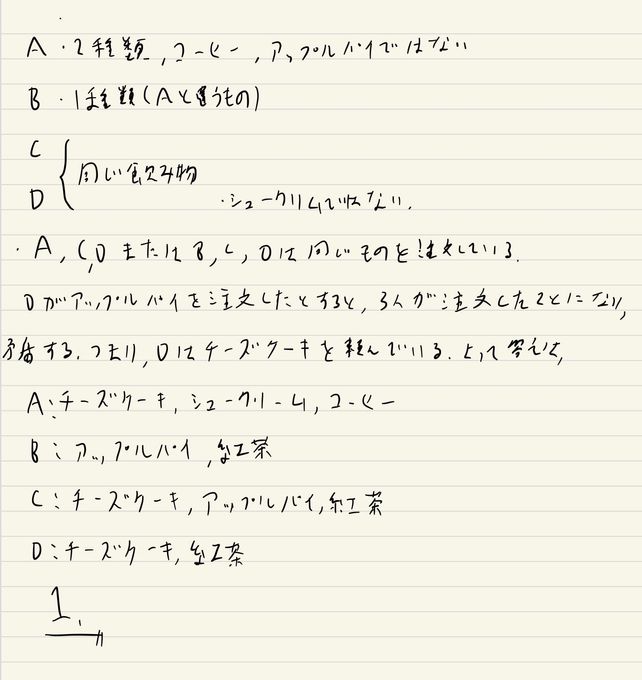 A・2種類,コーヒー,アップルパイではない
B・1種類(Aと違うもの)
C
D
同じ飲み物
・シュークリームではない.
・A,C,DまたはB,C,Dは同じものを注文している.
Dがアップルパイを注文したとすると,3人が注文したことになり,
矛盾する.つまり,Dはチーズケーキを頼んでいる.よって答えは,
A:チーズケーキ,シュークリーム,コーヒー
B:アップルパイ,紅茶
C:チーズケーキ,アップルパイ,紅茶
D:チーズケーキ,紅茶
1.